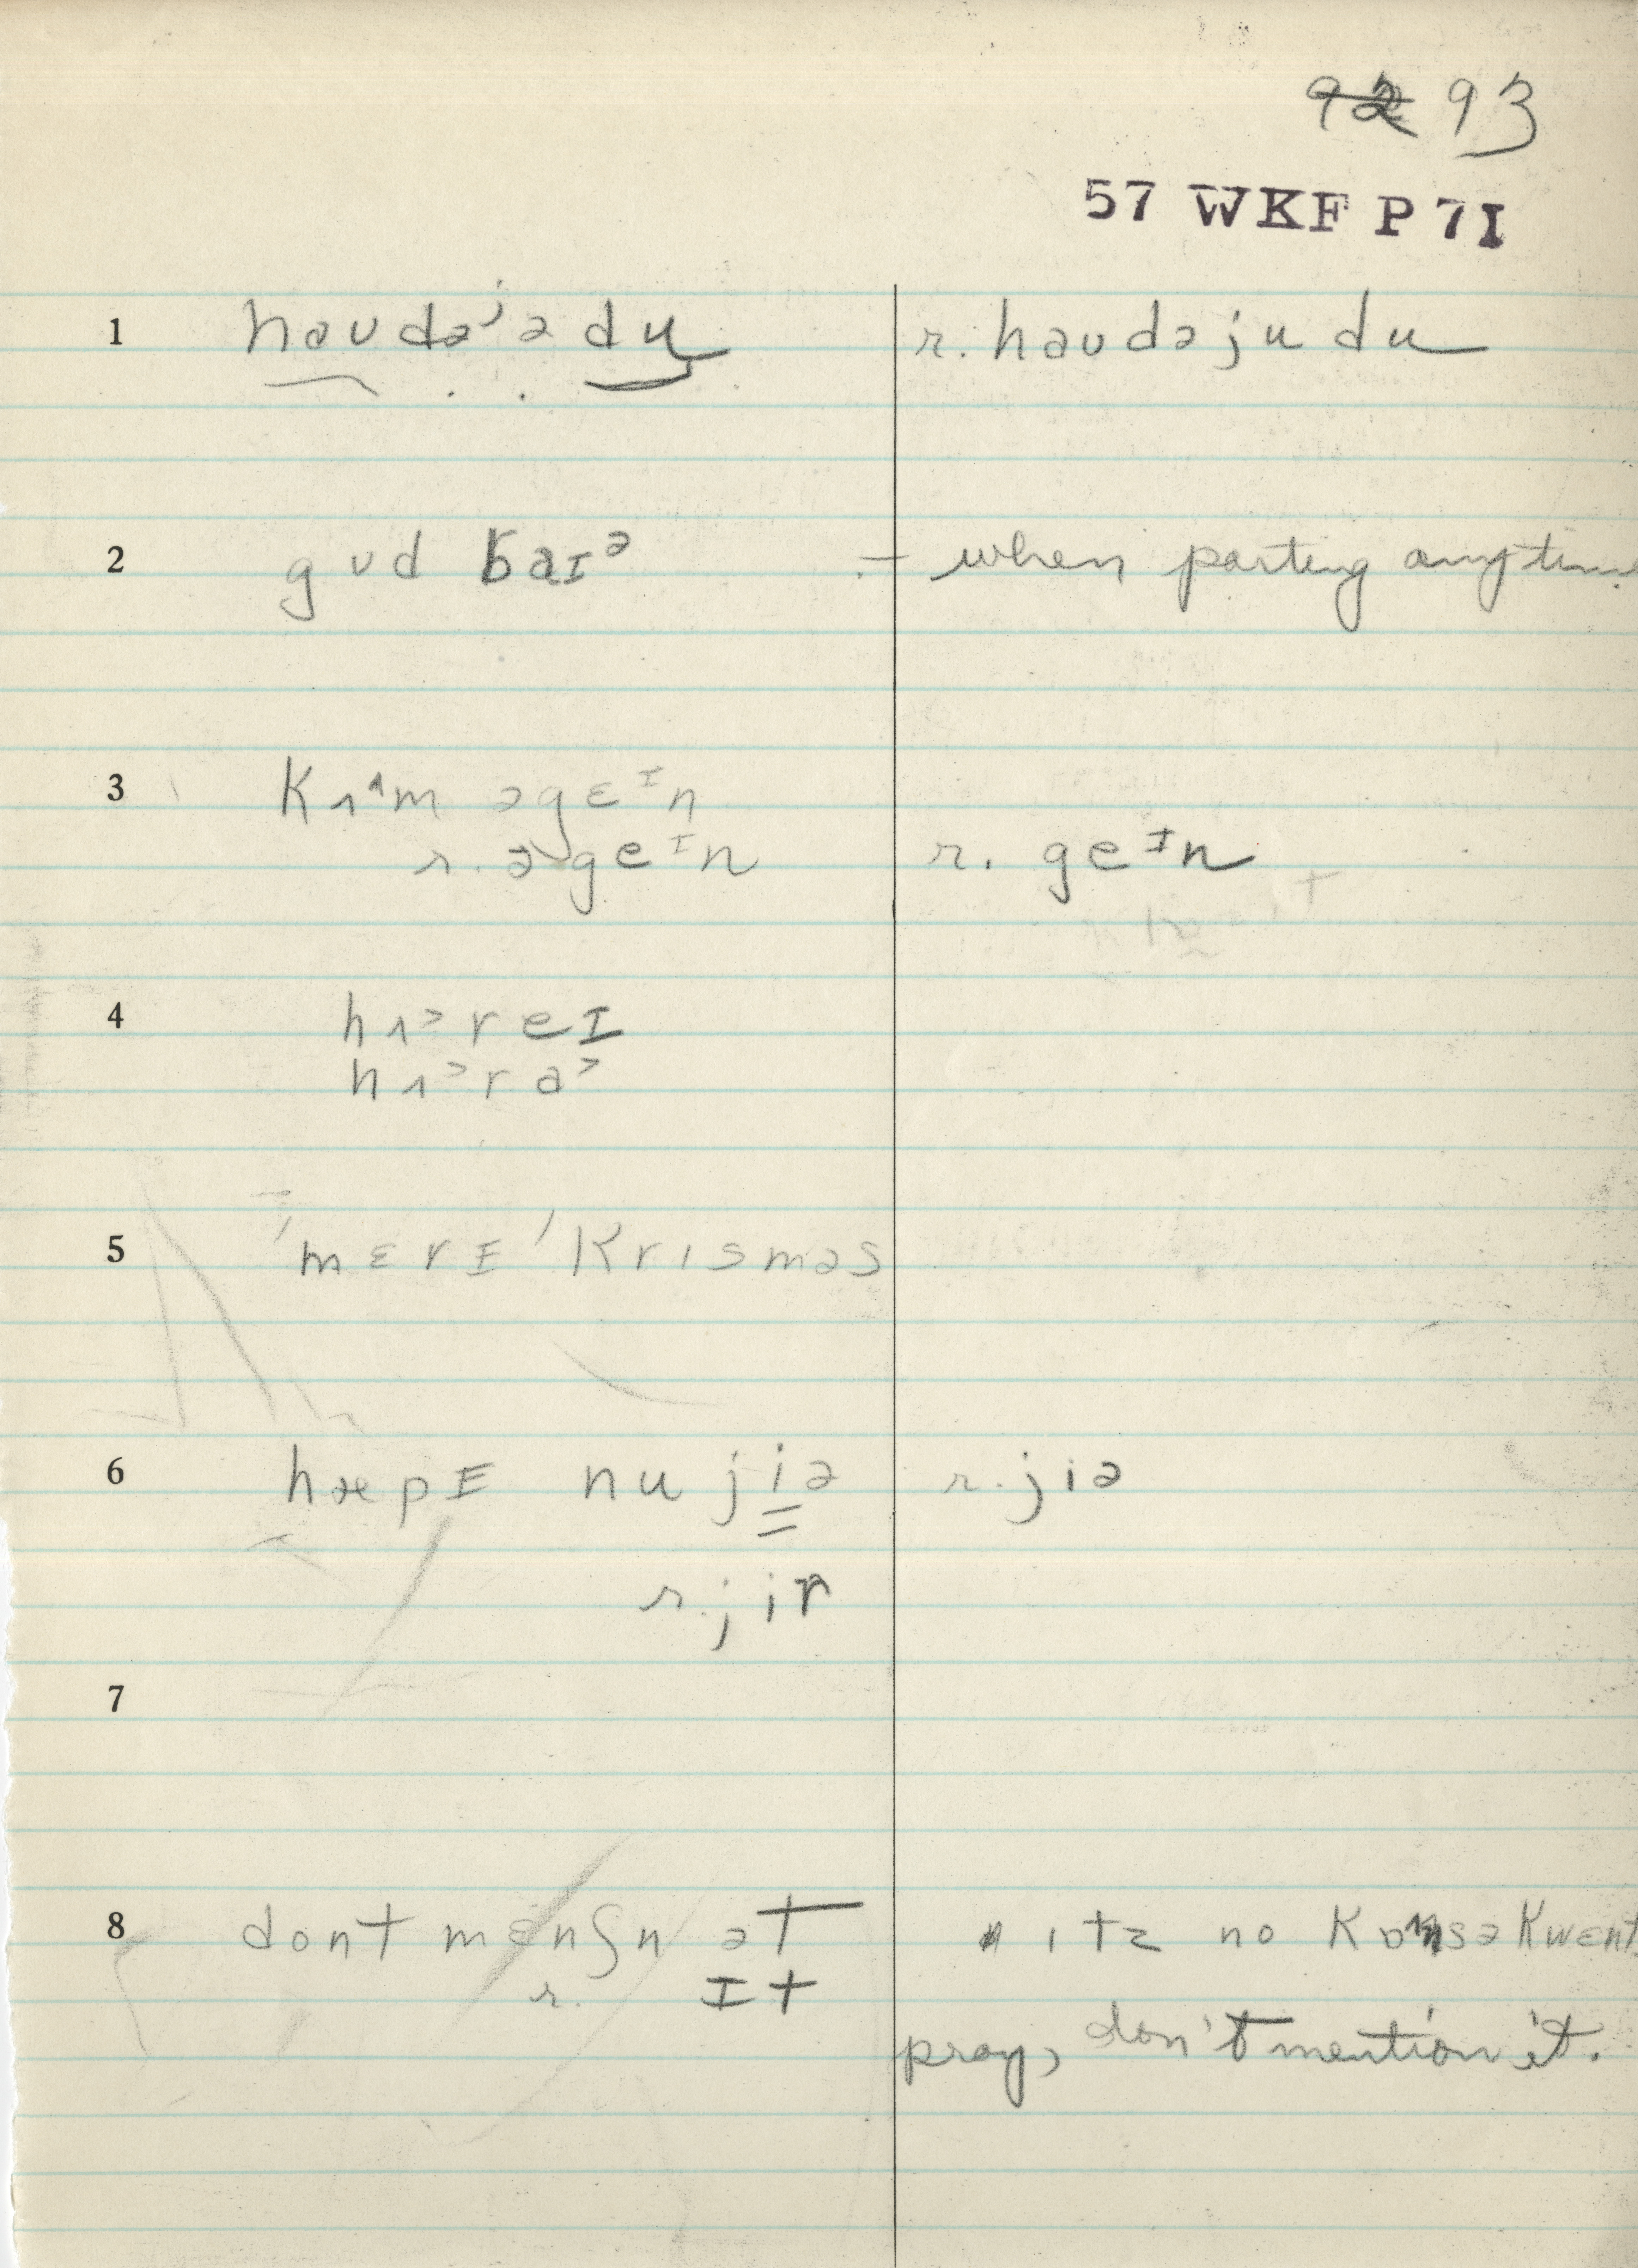 92 93
57 WKF P 7I
1 haudəˈə du r. haudəju du
2 gud baɪᵊ – when parting anytime
3 kɅ^m əgɛᴵn
r. əgeᴵn r. geᴵn
4 hɅᵊreɪ
hɅᵊrəᵊ
5 ˈmɛrɪ ˈkrɪsməs
6 hæpɪ nu jiə r. jiə
r. jir
7
8 dont mɛnʃn ət ɪts no kɒnsəkwɛnt
r. ɪt
pray, don't mention it.